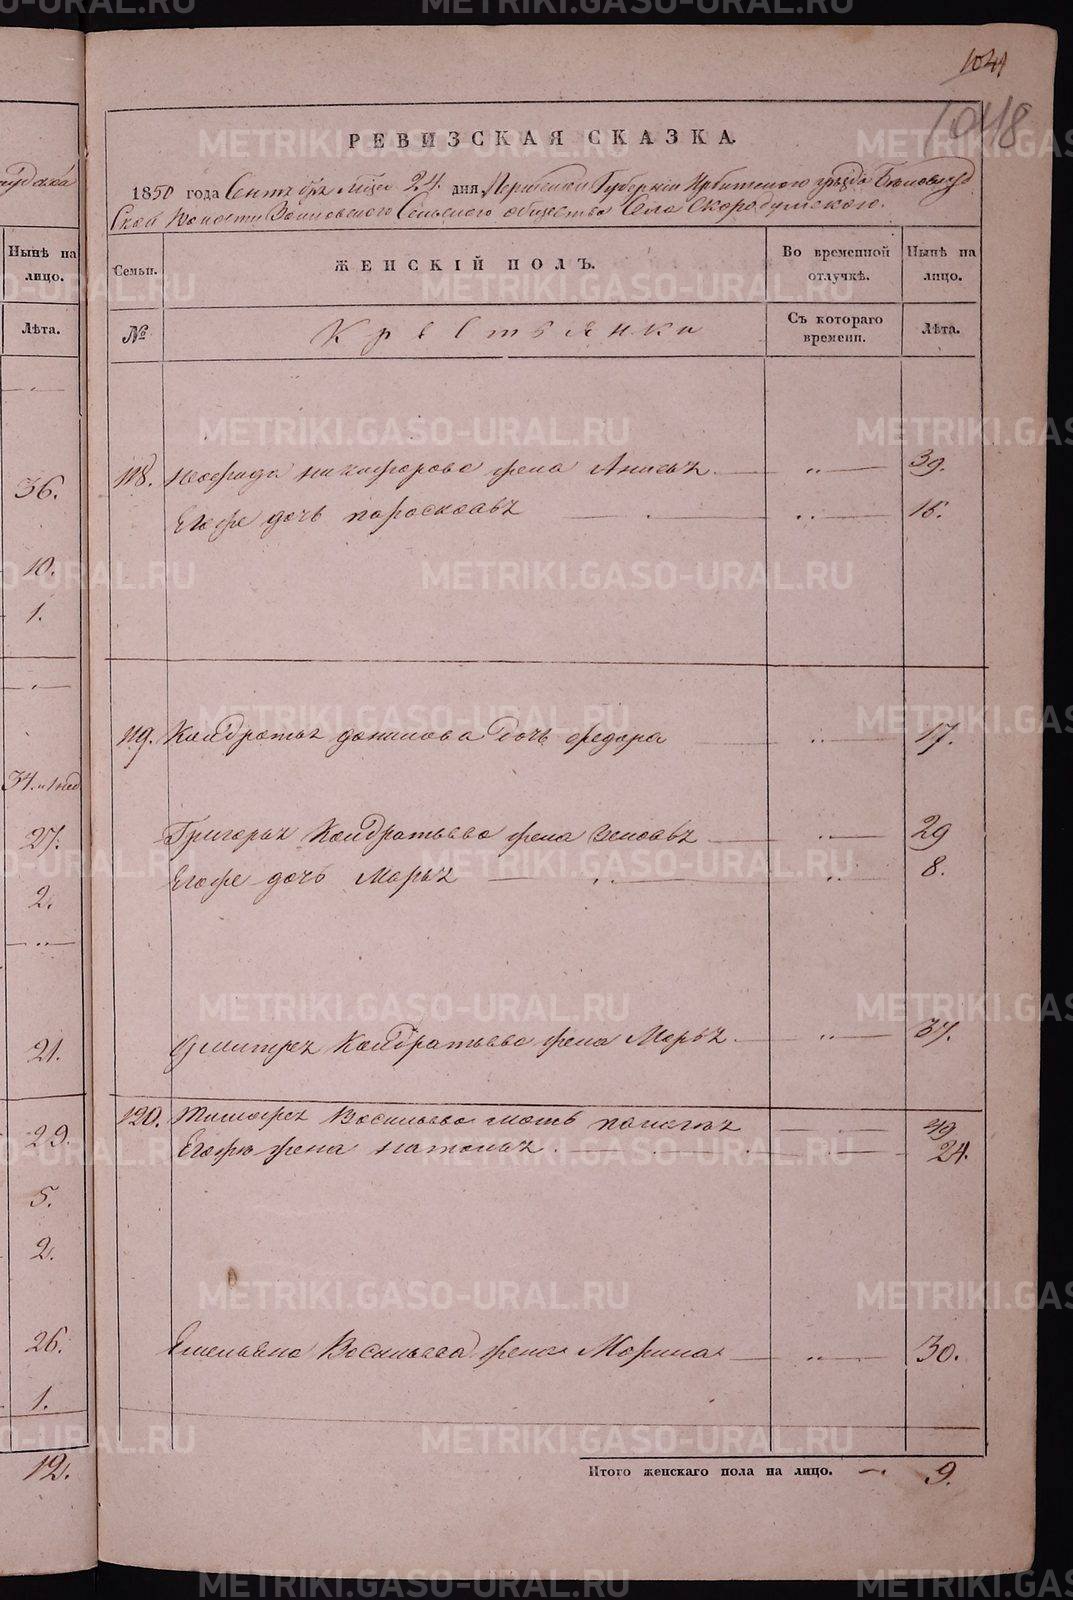 1041
1048
РЕВИЗСКАЯ СКАЗКА.
1850 года Сентября месяца 24 дня Пермской Губернии Ирбитского уезда Белослуд
ской волости Сельского общества Села Скородумского.
Нынѣ на лицо.
Лѣта.
36.
10.
1.
34. и 1 нед
27.
2.
21.
29.
5.
2.
26.
1.
12.
Семьи. ЖЕНСКІЙ ПОЛЪ. Во временной отлучкѣ. Нынѣ на лицо.
№ Крестьянки Съ котораго времени. Лѣта.
118. никифорова жена Анисья 39.
Егоже дочь парасковья 16.
119. Кондратья данилова дочь федора 17.
Григорья Кондратьева жена 29
Егоже дочь Марья 8.
Дмитрея Кондратьева жена Марья 37.
120. Тимофея Васильева мать пелагея 49
Егожь жена наталья 24.
Емельяна Васильева жена Марина 30.
Итого женскаго пола на лицо. 9.
METRIKI.GASO-URAL.RU